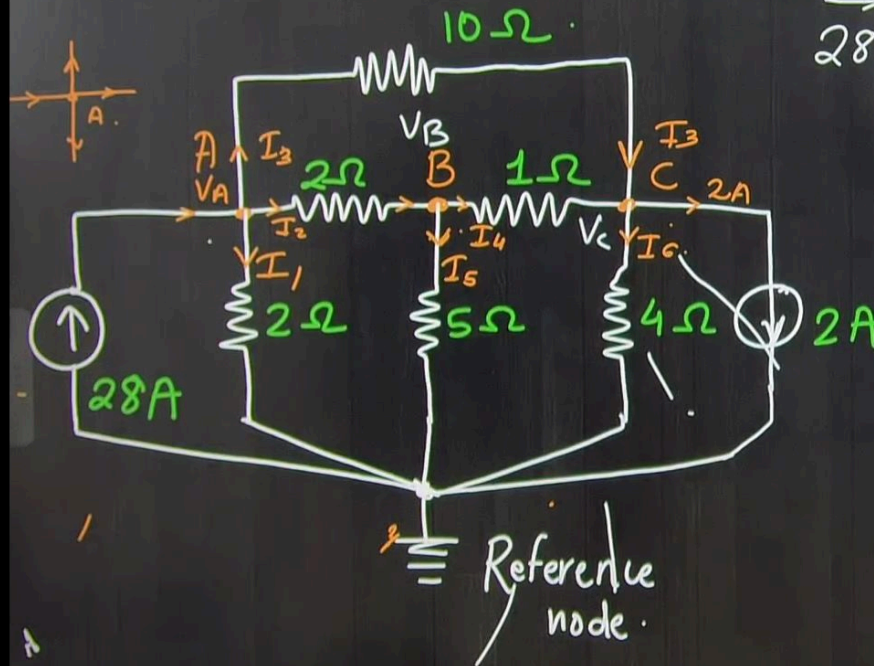 10Ω
28
A.
VB
A I3
VA
2Ω
B
1Ω
I3
C
2A
I2
I4
Vc
I6
I1
I5
2Ω
5Ω
4Ω
2A
28A
Reference
node.